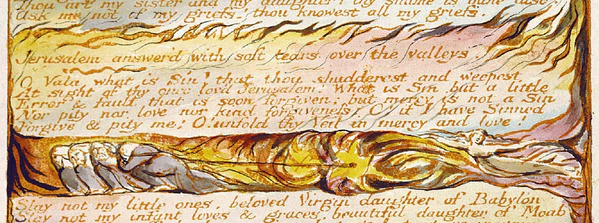 Thou art my sister and my daughter! thy shame is mine also!
Ask me not of my griefs! thou knowest all my griefs.
Jerusalem answer'd with soft tears over the valleys.
O Vala what is Sin? that thou shudderest and weepest
At sight of thy once lov'd Jerusalem! What is Sin but a little
Error & fault that is soon forgiven; but mercy is not a Sin
Nor pity nor love nor kind forgiveness! O! if I have Sinned
Forgive & pity me! O! unfold thy Veil in mercy and love!
Slay not my little ones, beloved Virgin daughter of Babylon
Slay not my infant loves & graces, beautiful daughter of Moab